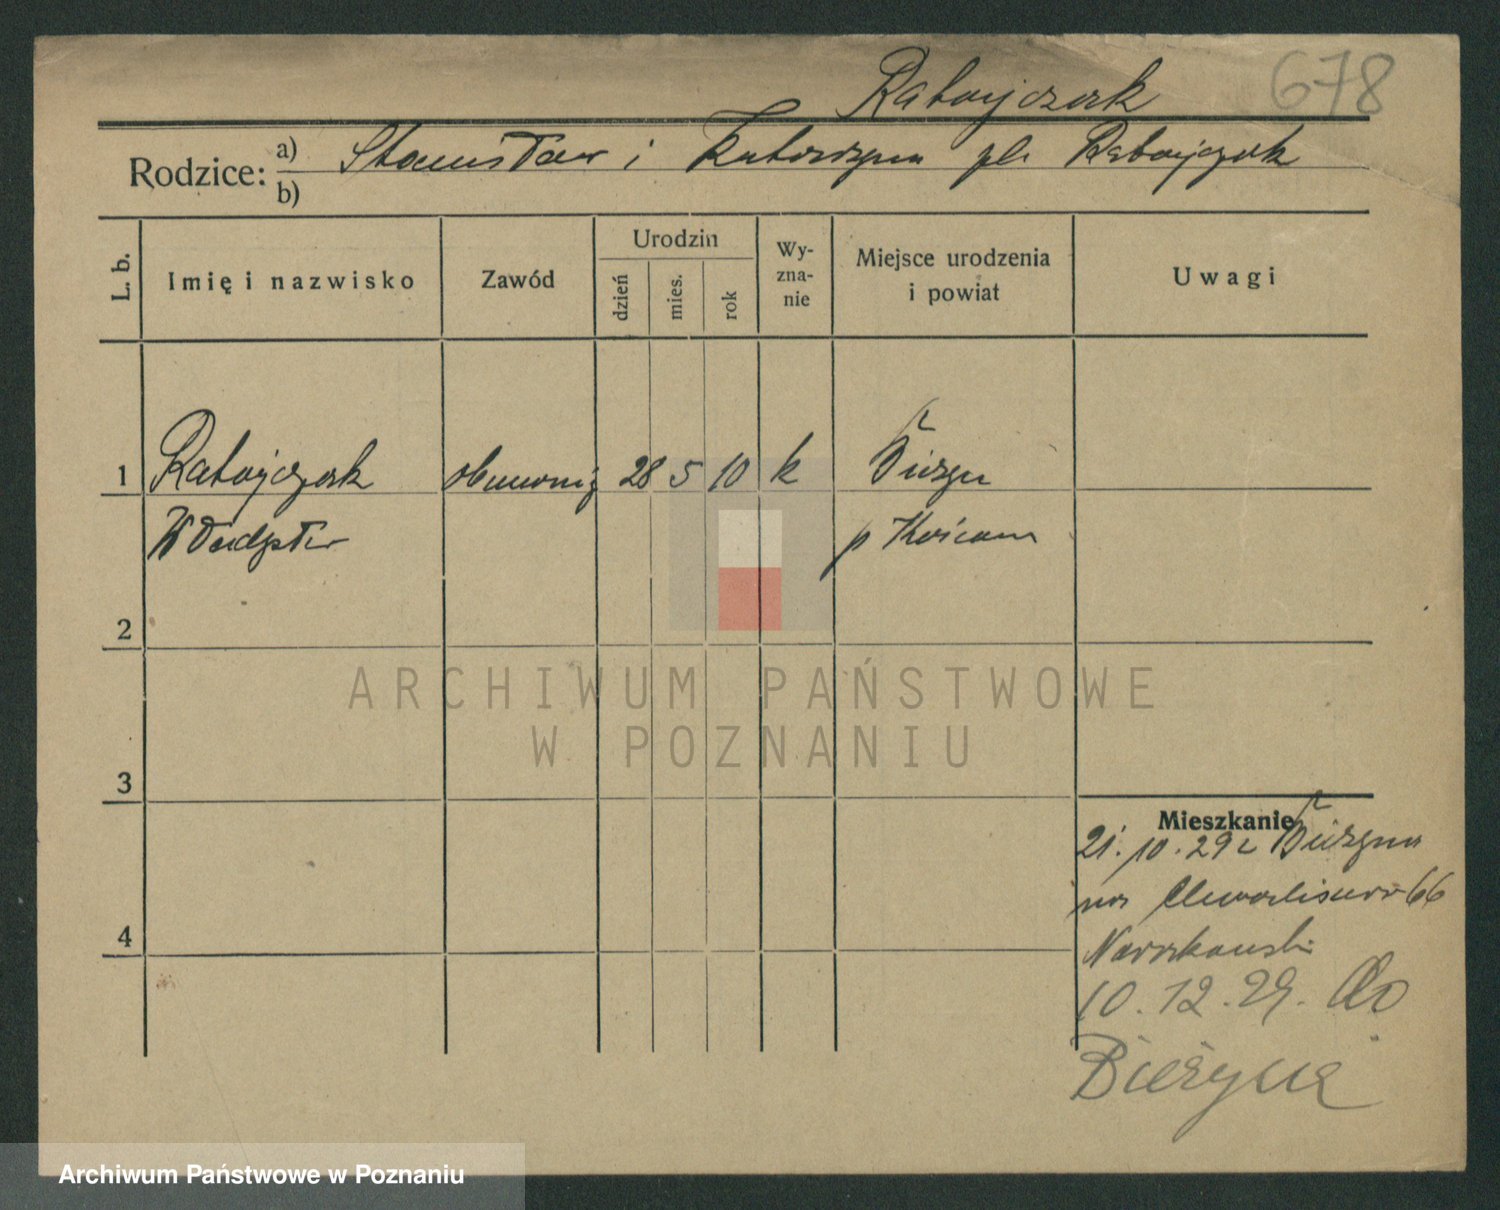 Ratajczak 678
Rodzice: a) Stanisław i Katarzyna Ratajczak
b)
L. b. Imię i nazwisko Zawód Urodzin dzień mies. rok Wyznanie Miejsce urodzenia i powiat Uwagi
1 Ratajczak 28 5 10 k
Władysław p Kościan
2
3
4
Mieszkanie
21.10.29 z
na 66
10.12.29. do
Bieżyna
ARCHIWUM PAŃSTWOWE
W POZNANIU
Archiwum Państwowe w Poznaniu